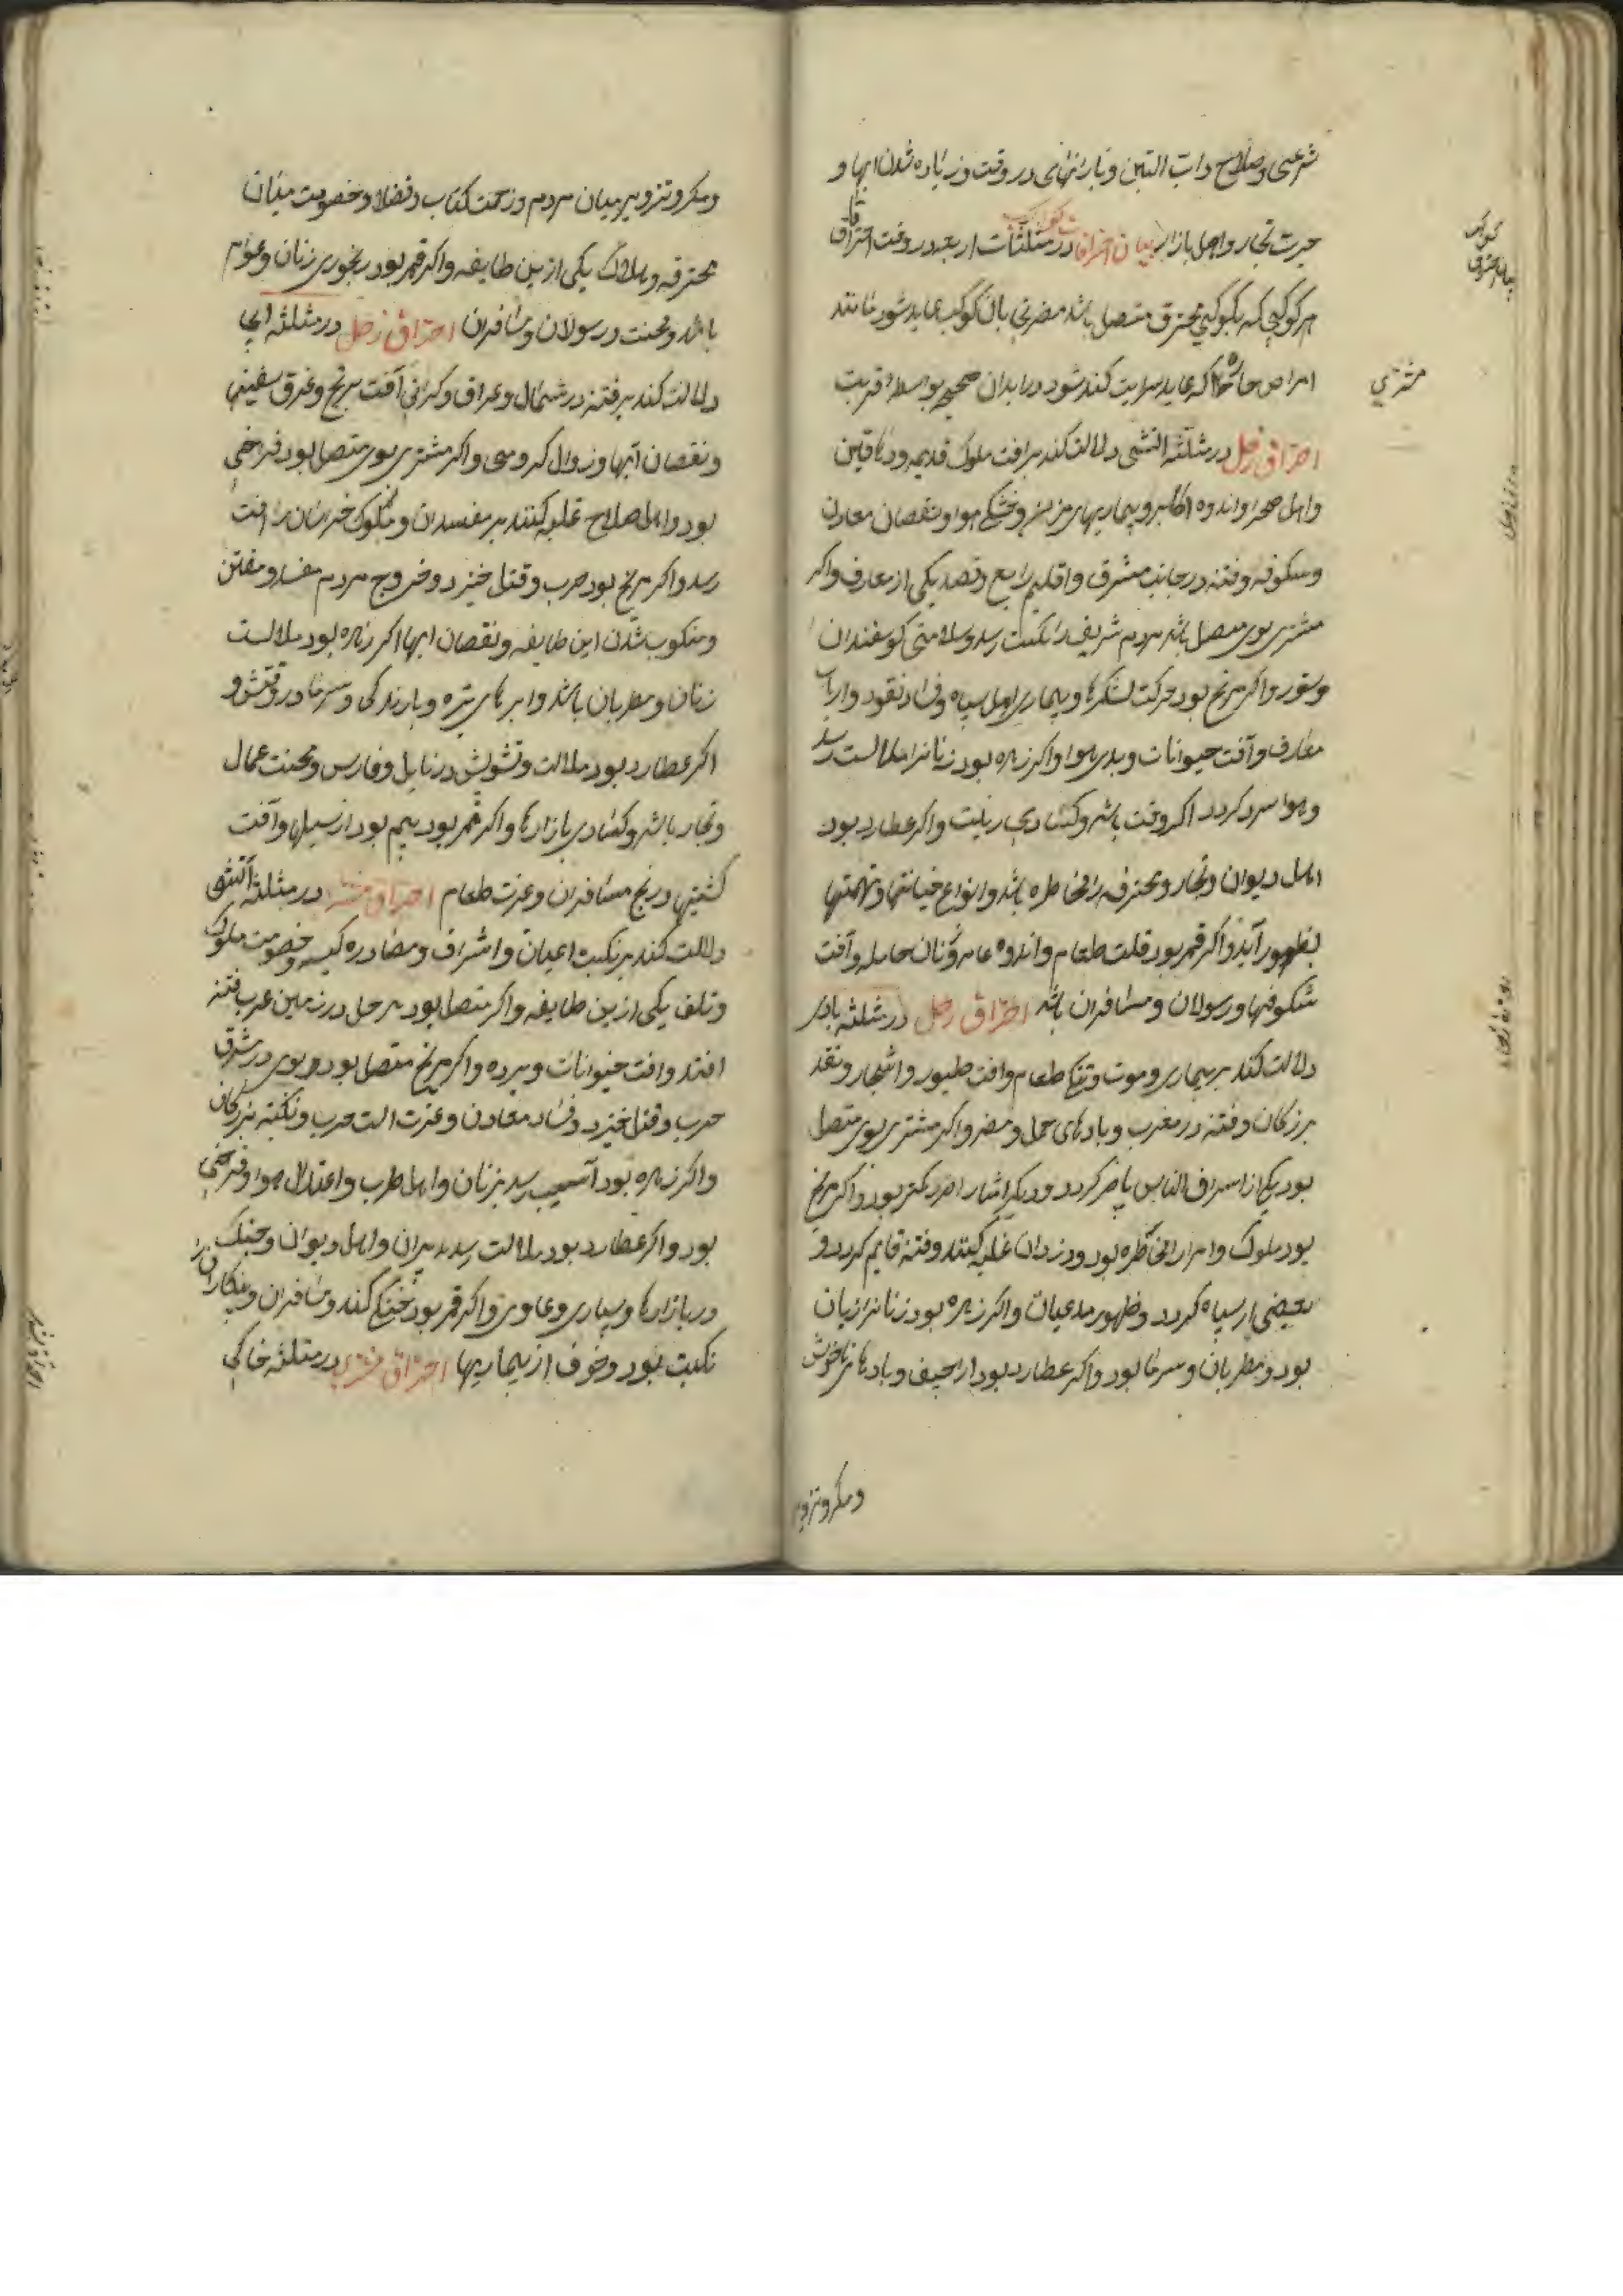 شرعی و صلاح دابت التین و بارانهای در وقت و زیاده شدن ابها و
حیرت تجار و اهل بازار بیان احتراقات کواکب در مثلثات اربعه در وقت احتراق
هر کوکبی که بکوکبی محترق متصل باشد مضرتی بان کوکب عاید شود مانند
امراض حاره که سرایت کند در ابدان صحیح بواسطه قربت
احتراق زحل در مثلثه اتشی دلالت کند بر افت ملوک قدیمه و دهاقین
و اهل صحرا و اندوه اکابر و بیماریهای مزمن و خشکی هوا و نقصان معادن
و سکوفه و فتنه در جانب مشرق و اقلیم رابع و قصد یکی از معارف و اکر
مشتری بوی متصل باشد مردم شریف را نکبت رسد و سلامتی کوسفندان
و ستور و اکر مریخ بود حرکت لشکرها و بیماری اهل سپاه و فساد نقود و ارباب
معارف و آفت حیوانات و بدی هوا و اکر زهره بود زنانرا ملالت رسد
و هوا سرد کردد اکر وقت باشد و کسادی زینت و اکر عطارد بود
اهل دیوان و تجار و محترفه را مخاطره باشد و انواع خیانتها و تهمتها
بظهور آید و اکر قمر بود قلت طعام و اندوه عامه و زنان حامله و آفت
شکوفها و رسولان و مسافران باشد احتراق زحل در مثلثه بادی
دلالت کند بر بیماری و موت و تنکی طعام و افت طیور و اشجار و نقد
بزرکان و فتنه در مغرب و بادهای حمل و مضر و اکر مشتری بوی متصل
بود یکی از اشراف الناس پاضر کردد و دیکر اشار اضر کمتر بود و اکر مریخ
بود ملوک و امرا را مخاطره بود و دزدان غلبه کنند و فتنه قایم کردد و
بعضی از سپاه کردد و ظهور مدعیان و اکر زهره بود زنانرا زیان
بود و مطربان و سرما بود و اکر عطارد بود اراجیف و بادهای ناخوش
و مکر و تزویر
کواکب
بیان احتراق
مشتری
و مکر و تزویر میان مردم و زحمت کتاب و فضلا و خصومت میان
محترفه و هلاک یکی ازین طایفه و اکر قمر بود رنجوری زنان و عوام
باشد و محنت رسولان و مسافران احتراق زحل در مثلثه ابی
دلالت کند بر فتنه در شمال و عراق و کرانی آفت برنج و غرق سفینها
و نقصان آبها و زوال کروهی و اکر مشتری بوی متصل بود فراخی
بود و اهل صلاح غلبه کنند بر مفسدان و ملوک خراسان را افت
رسد و اکر مریخ بود حرب و قتل خیزد و خروج مردم مفسد و مفتن
و منکوب شدن این طایفه و نقصان ابها اکر زهره بود ملالت
زنان و مطربان باشد و ابرهای تیره و بارندکی و سرما در وقتش و
اکر عطارد بود ملالت و تشویش در بابل و فارس و محنت عمال
و تجار باشد و کسادی بازارها و اکر قمر بود بیم بود از سیلها و آفت
کشتیها و رنج مسافران و عزت طعام احتراق مشتری در مثلثه آتشی
دلالت کند بر نکبت اعیان و اشراف و مصادره کیسه و خصومت ملوک
و تلف یکی ازین طایفه و اکر متصل بود بزحل در زمین عرب فتنه
افتد و افت حیوانات و برده و اکر مریخ متصل بود و بوی در مشرق
حرب و قتل خیزد و فساد معادن و عزت الت حرب و نکبته بزرکان
و اکر زهره بود آسیب رسد بزنان و اهل طرب و اعتدال هوا و فراخی
بود و اکر عطارد بود ملالت رسد بدبیران و اهل دیوان و جنک
در بازارها و بسیاری دعاوی و اکر قمر بود خنکی کند و مسافران و پیکارانرا
نکبت بود و خوف از بیماریها احتراق مشتری در مثلثه خاکی